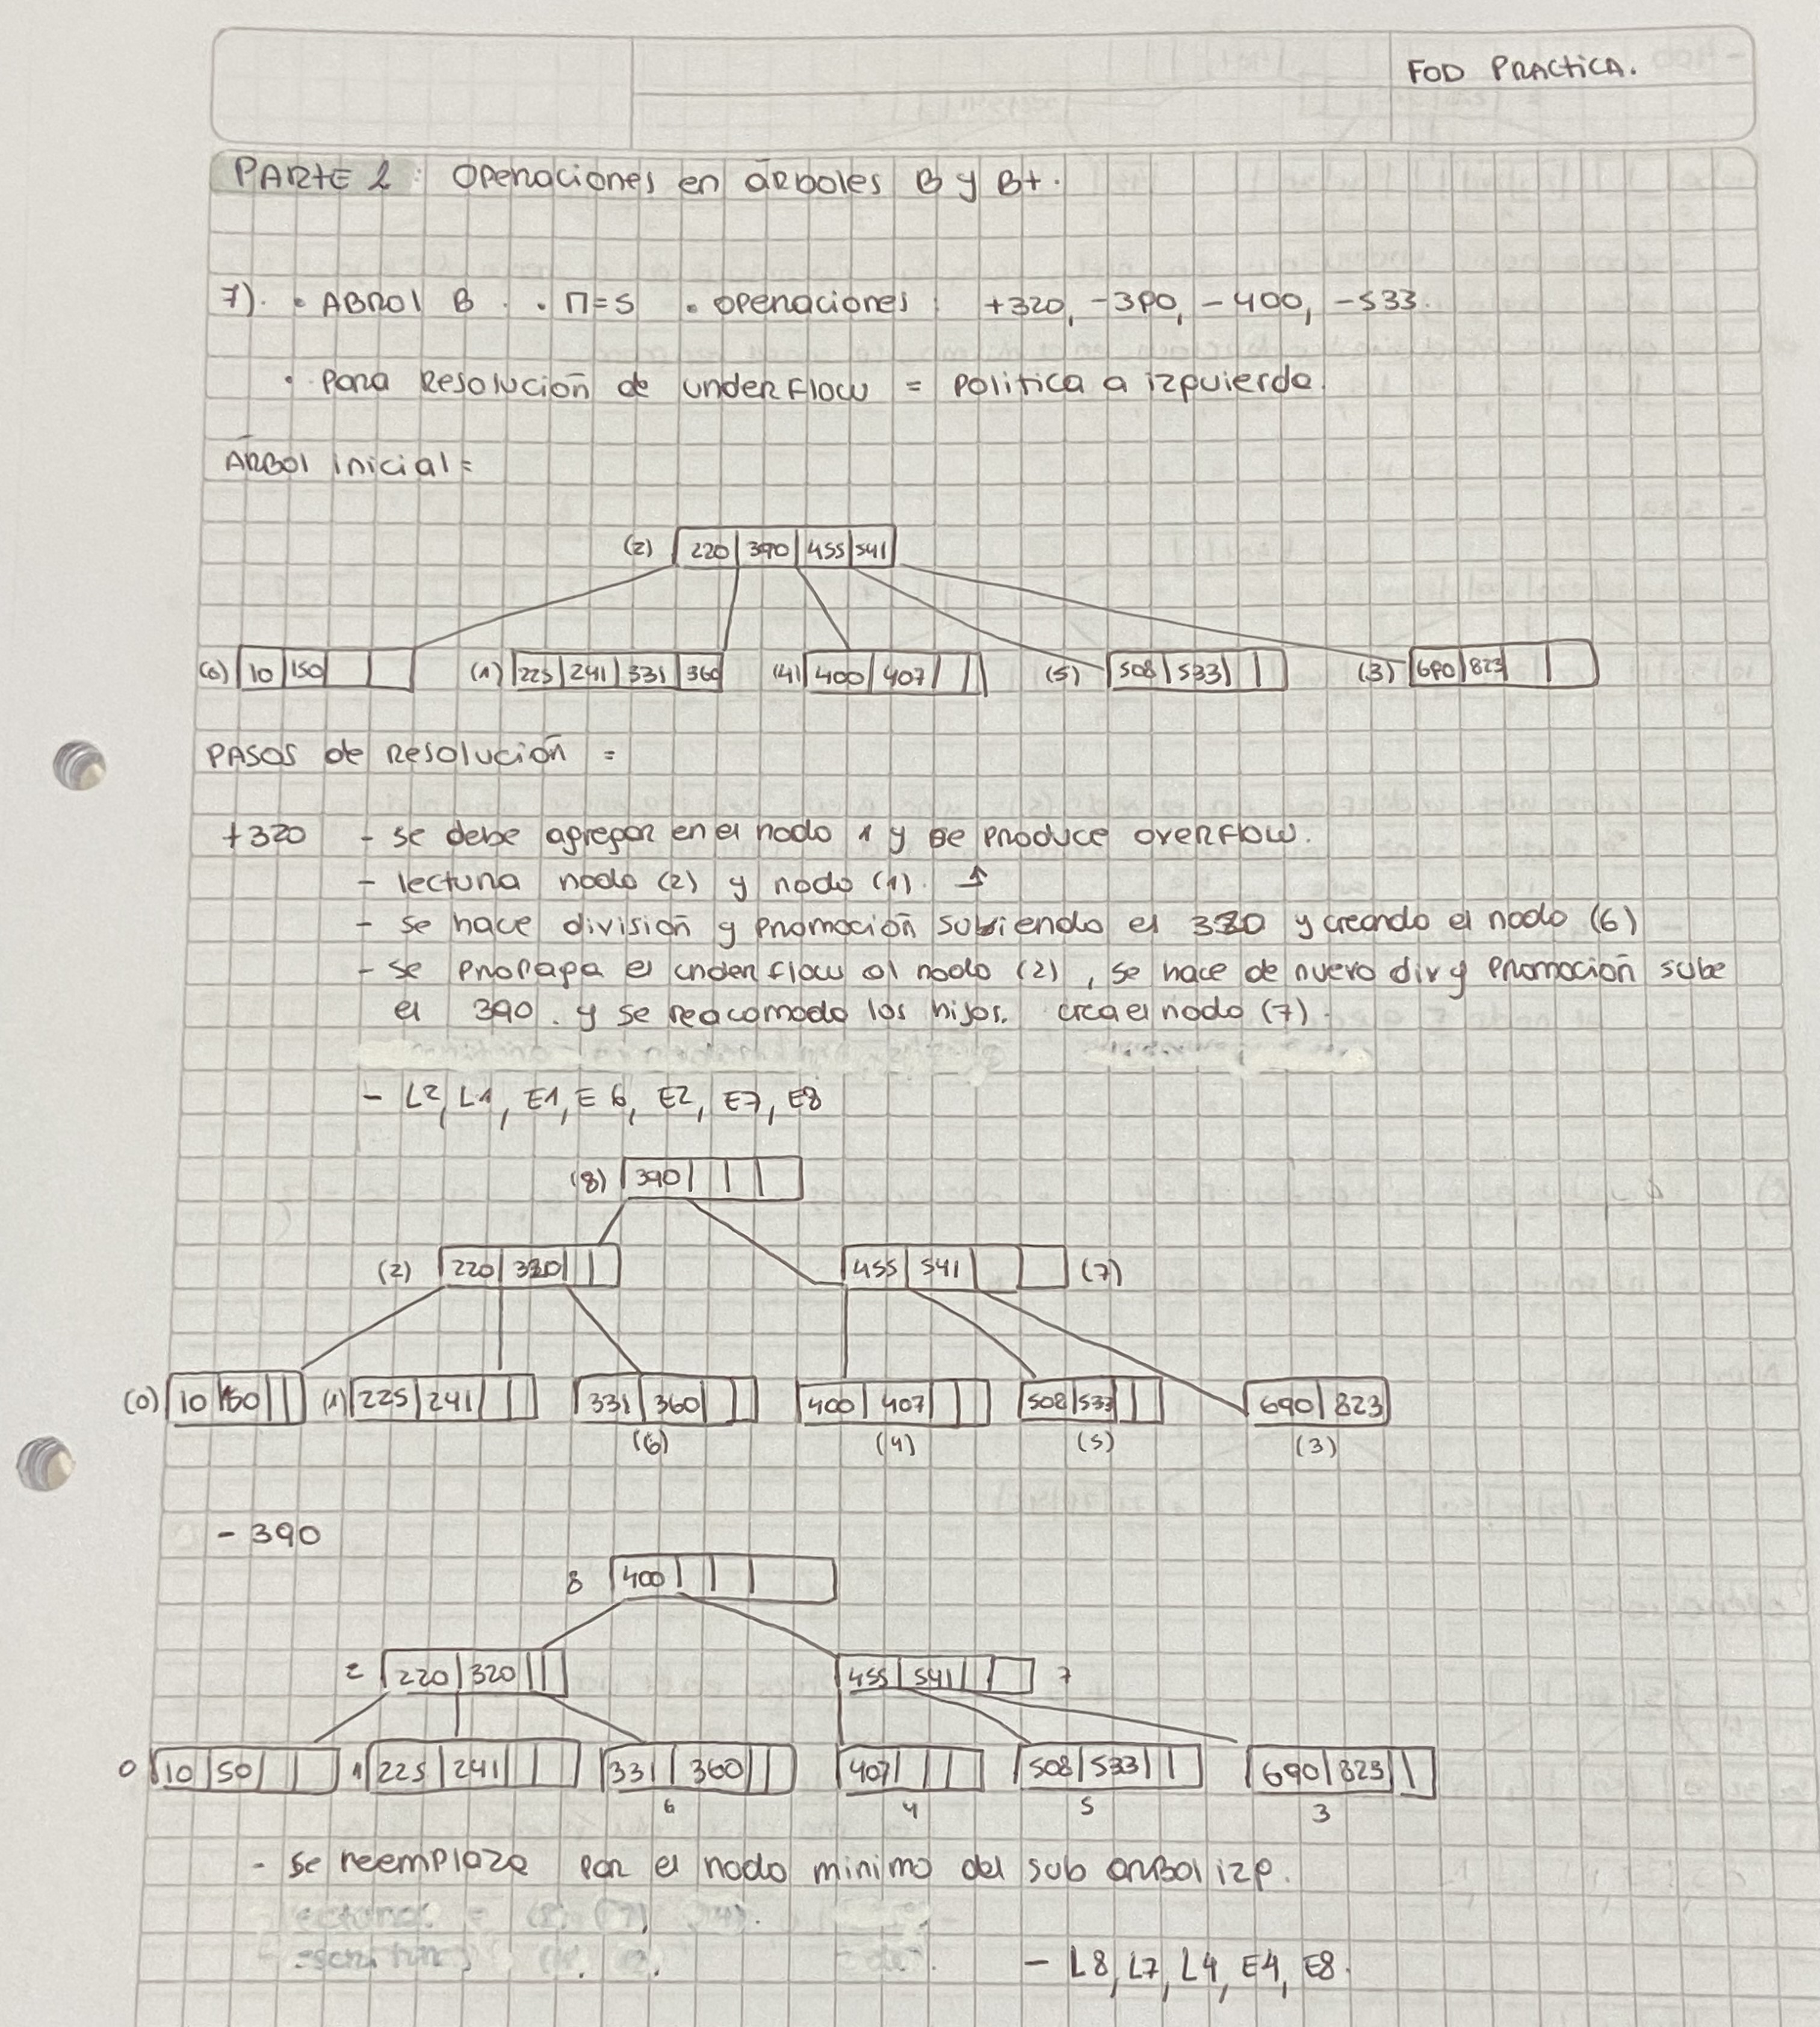 FOD PRACTICA.
PARTE 2: Operaciones en árboles B y B+.
7). • ABROl B • • M=5 • operaciones: +320, -390, -400, -533.
• Para Resolución de underflow = politica a izquierda.
Árbol inicial =
(2) 220 390 455 541
(0) 10 150 (1) 225 241 331 360 (4) 400 407 (5) 508 533 (3) 690 823
PASOS de Resolución =
+320 - se debe agregar en el nodo 1 y se produce overflow.
- lectura nodo (2) y nodo (1). ↑
- se hace división y promoción subiendo el 320 y creando el nodo (6)
- se propaga el underflow al nodo (2), se hace de nuevo div y promoción sube
el 390. y se reacomoda los hijos. crea el nodo (7).
- L2, L1, E1, E6, E2, E7, E8
(8) 390
(2) 220 320 455 541 (7)
(0) 10 150 (1) 225 241 331 360 400 407 508 533 690 823
(6) (4) (5) (3)
- 390
8 400
2 220 320 455 541 7
0 10 50 1 225 241 331 360 407 508 533 690 823
6 4 5 3
- se reemplaza por el nodo minimo del sub arbol izq.
- L8, L7, L4, E4, E8.